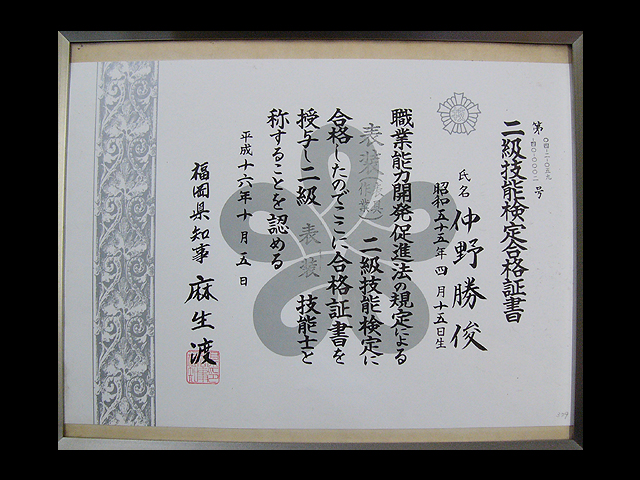 二級技能検定合格証書
第 〇四-二-一〇五九-四〇-〇〇〇二 号
氏名 仲野勝俊
昭和五十五年四月十五日生
職業能力開発促進法の規定による
表装 二級技能検定に
合格したのでここに合格証書を
授与し二級 表装 技能士と
称することを認める
平成十六年十月五日
福岡県知事 麻生渡